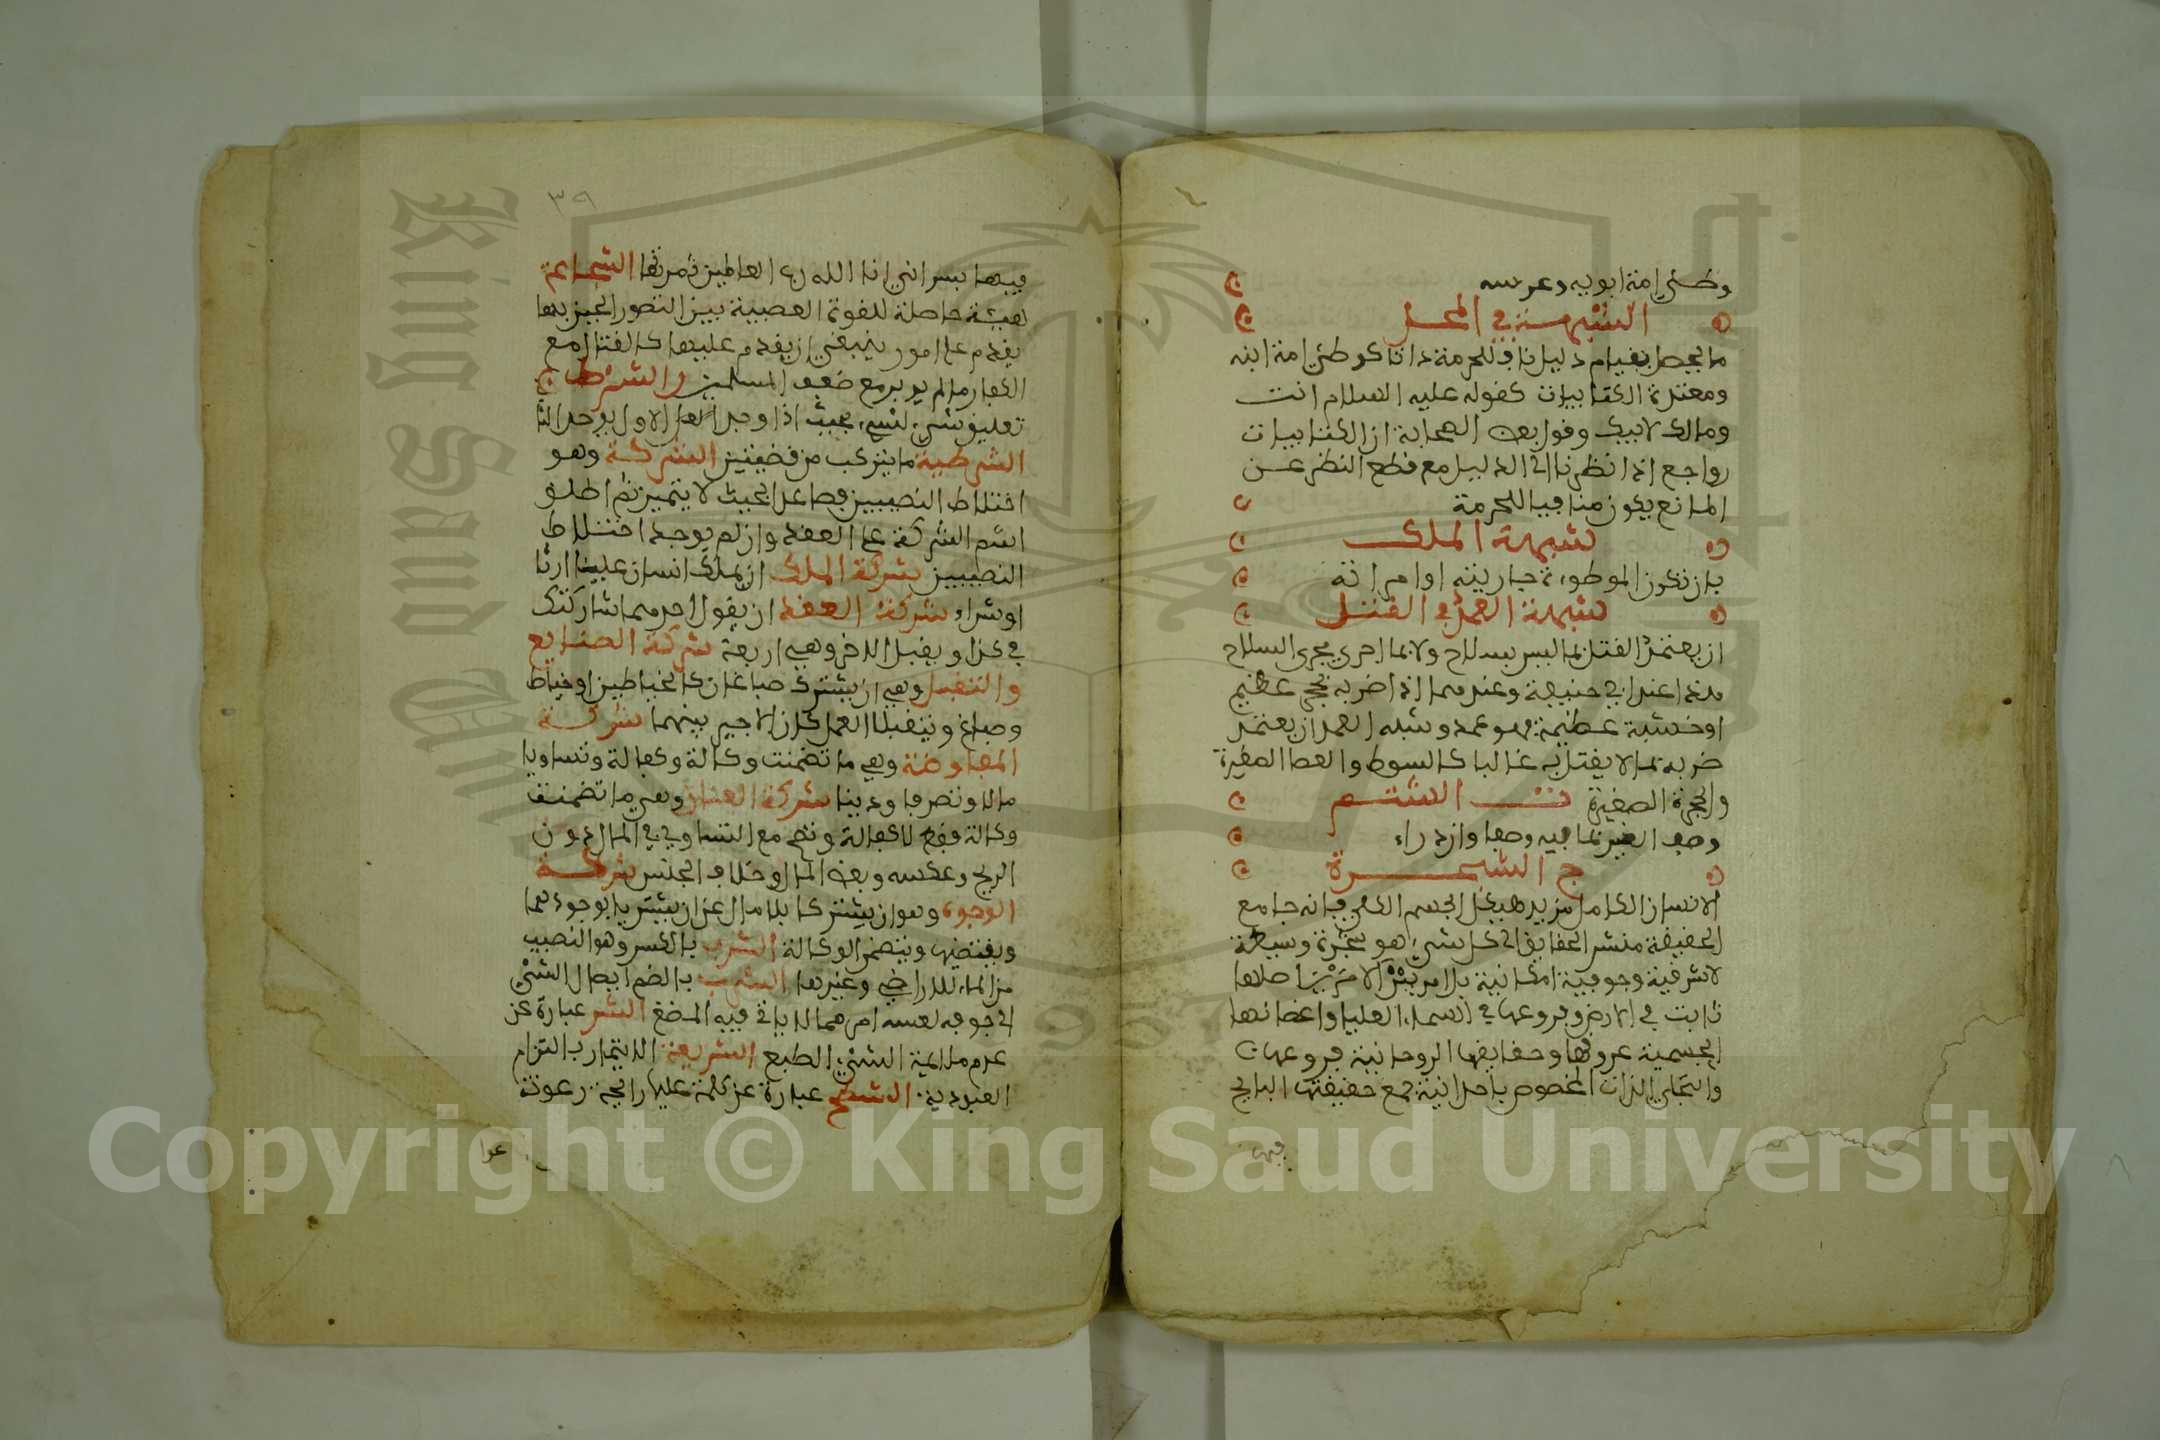 وطئي امة ابويه وعرسه
الشبهة في المحل
ما يحصل بقيام دليل ناف للحرمة ذاتا كوطئي امة ابنه
ومعتدة الكنايات كقوله عليه السلام انت
ومالك لابيك وقول بعض الصحابة ان الكنايات
رواجع اذا نظرنا الى الدليل مع قطع النظر عن
المانع يكون منافيا للحرمة
شبهة الملك
بان تكون الموطوءة جاريته او امراته
شبهة العمد في القتل
ان يعتمد القتل بما ليس بسلاح ولا بما اجري مجرى السلاح
هذا عند ابي حنيفة وعندهما اذا ضربه بحجر عظيم
او خشبة عظيمة فهو عمد وشبه العمد ان يعتمد
ضربه بما لا يقتل به غالبا كالسوط والعصا الصغيرة
والحجرة الصغيرة الشتم
وصف الغير بما فيه وصفا وازدراء
ج الشجرة
الانسان الكامل مزيد هيكل الجسم الكلي فانه جامع
الحقيقة منتشر الحقايق الى كل شيء هو شجرة وسيطة
لا شرقية وجوبية امكانية بل امر بين الامرين اصلها
ثابت في الارض وفروعها في السماء العليا واعضائها
الجسمية عروقها وحقايقها الروحانية فروعها
والتجلي الذات المخصوص باحدانية جمع حقيقتها الناتج
فيها
٣٩
فيها بسر اني انا الله رب العالمين ثمرتها الشجاعة
هيئة حاصلة للقوة الغضبية بين التهور والجبن بها
يقدم على امور ينبغي ان يقدم عليها كالقتال مع
الكفار ما لم يزيدوا مع ضعف المسلمين الشرط
تعليق شيء لشيء بحيث اذا وجد الاول يوجد الثا
الشرطية ما يتركب من قضيتين الشركة وهو
اختلاط النصيبين فصاعدا بحيث لا يتميز ثم اطلق
اسم الشركة على العقد وان لم يوجد اختلاط
النصيبين شركة الملك ان يملك انسان عينا ارثا
او شراء شركة العقد ان يقول احدهما شاركتك
في كذا ويقبل الاخر وهي اربعة شركة الصنايع
والتقبل وهي ان يشترك صانعان كالخياطين او خياط
وصباغ ويتقبلا العمل كان الاجر بينهما شركة
المفاوضة وهي ما تضمنت وكالة وكفالة وتساويا
مالا وتصرفا ودينا شركة العنان وهي ما تضمنت
وكالة فقط لا كفالة وتصح مع التساوي في المال دون
الربح وعكسه وبعض المال وخلاف الجنس شركة
الوجوه وهو ان يشتركا بلا مال على ان يشتريا بوجوههما
ويقتضيها ويتضمن الوكالة الشرب بالكسر وهو النصيب
من الماء للاراضي وغيرها الشرب بالضم ايصال الشيئ
الى جوفه بنفسه مما لا يتاتى فيه المضغ الشر عبارة عن
عدم ملايمة الشيئ الطبع الشريعة الايتمار بالتزام
العبودية الشطح عبارة عن كلمة عليها رايحة رعونة
Copyright © King Saud University